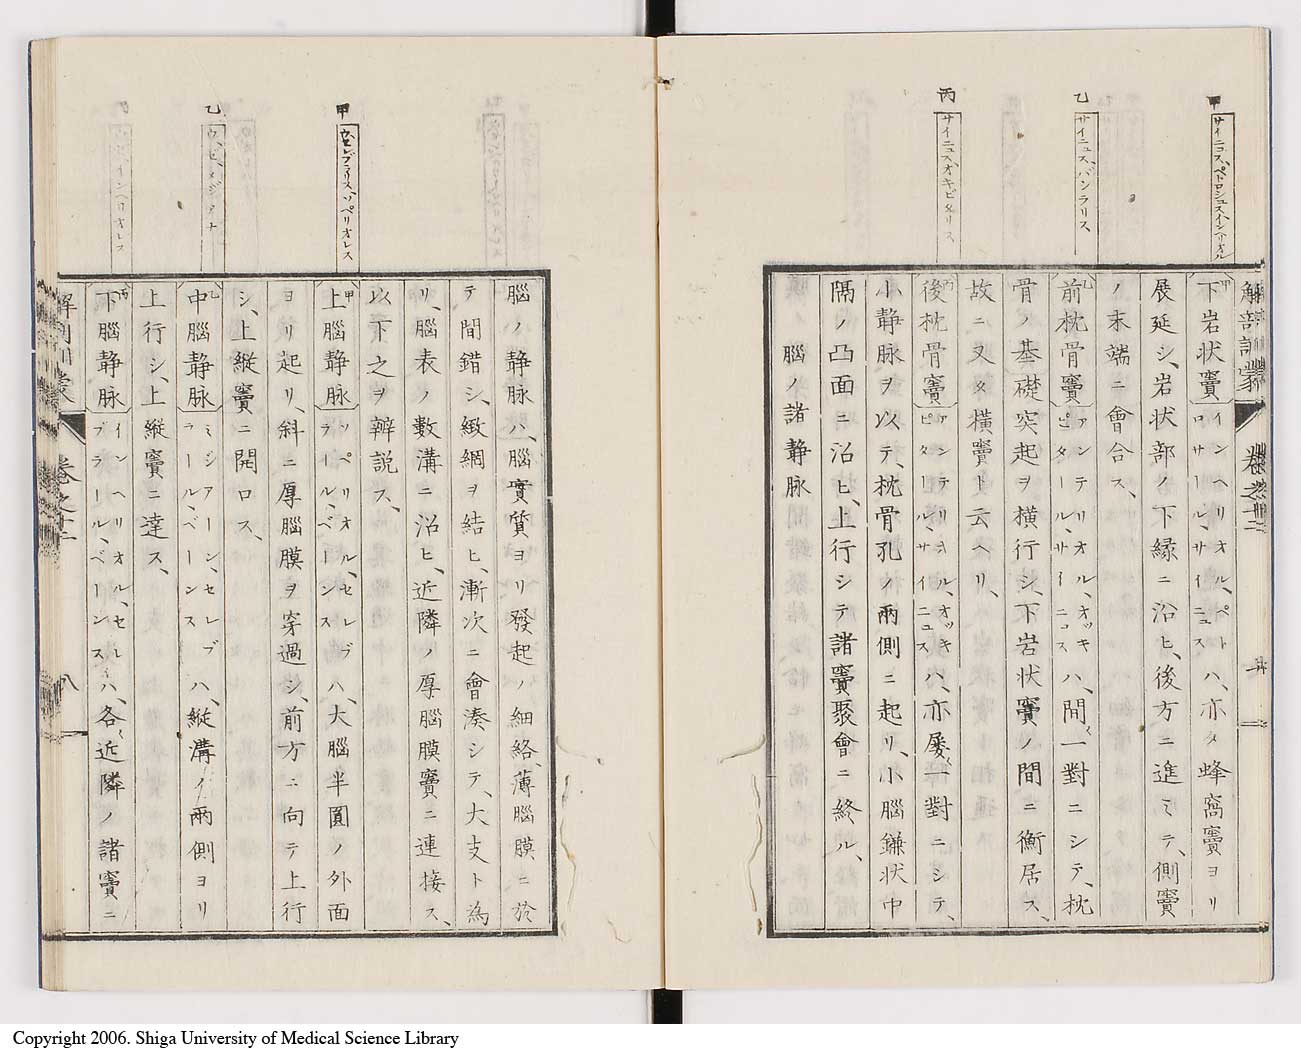 甲
サイニュス、ペトロシュス、インヘリオル
乙
サイニュス、バシラリス
丙
サイニュス、オキピタリス
解剖訓蒙
卷之十二
甲下岩状竇 インヘリオル、ペトロサール、サイニュス ハ、亦タ蜂窩竇ヨリ
展延シ、岩状部ノ下縁ニ沿ヒ、後方ニ進ミテ、側竇
ノ末端ニ會合ス、
乙前枕骨竇 アンテリオル、オッキピタール、サーニュス ハ、間〱一對ニシテ、枕
骨ノ基礎突起ヲ横行シ、下岩状竇ノ間ニ衡居ス、
故ニ又タ横竇ト云ヘリ、
丙後枕骨竇 ケンテリヨル、オッキピタール、サイニュス ハ、亦屡〱一對ニシテ、
小静脉ヲ以テ、枕骨孔ノ兩側ニ起リ、小腦鎌状中
隔ノ凸面ニ沿ヒ、上行シテ諸竇聚會ニ終ル、
腦ノ諸静脉
甲
乙
ウ、セ、メジアナ
丙
腦ノ静脉ハ、腦實質ヨリ發起ノ細絡、薄腦膜ニ於
テ間錯シ、緻網ヲ結ヒ、漸次ニ會湊シテ、大支ト為
リ、腦表ノ數溝ニ沿ヒ、近隣ノ厚腦膜竇ニ連接ス、
以下之ヲ辨説ス、
甲上腦静脉 ソッペリオル、セレブラール、ベーンス ハ、大腦半圓ノ外面
ヨリ起リ、斜ニ厚腦膜ヲ穿過シ、前方ニ向テ上行
シ、上縦竇ニ開口ス、
乙中腦静脉 ミシアーン、セレブラール、ベーンス ハ、縦溝ノ兩側ヨリ
上行シ、上縦竇ニ達ス、
丙下腦静脉 インヘリオル、セレブラール、ベーンス ハ、各〱近隣ノ諸竇ニ
解剖訓蒙
卷之十二
八
Copyright 2006. Shiga University of Medical Science Library